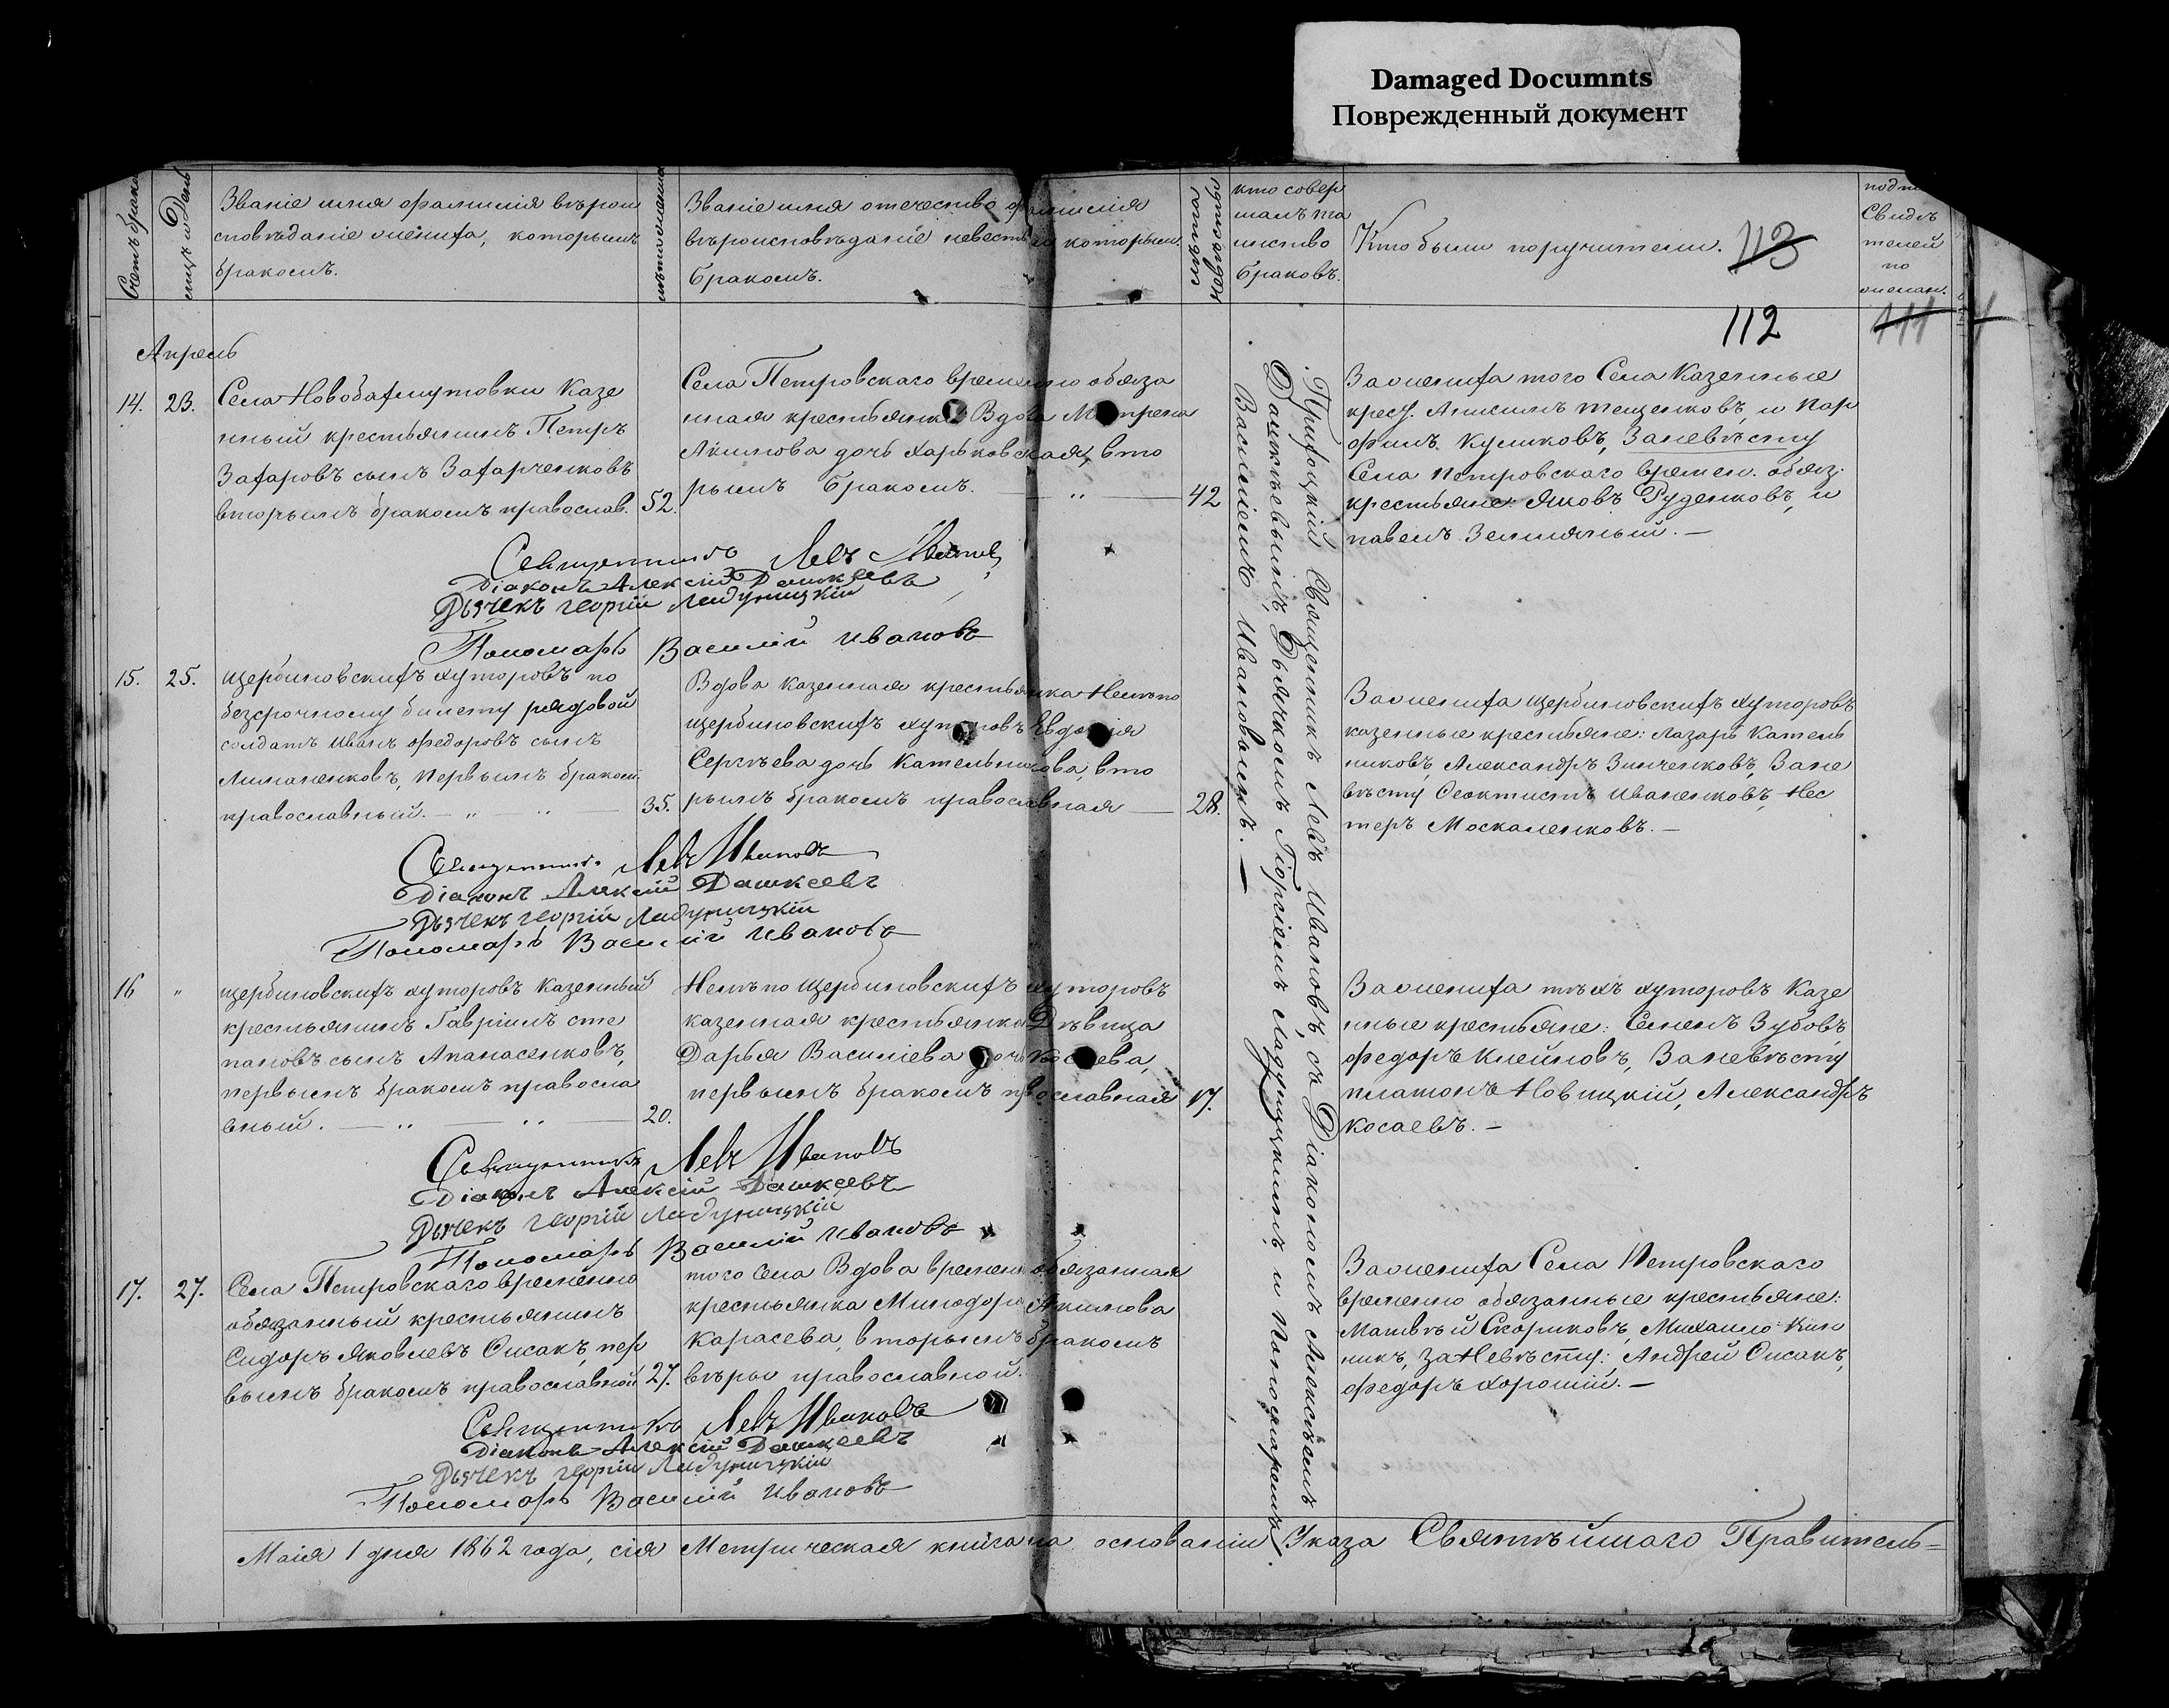 Damaged Documnts
Поврежденный документ
Счетъ брако
мцъ и День
Званіе имя фамилія вѣрои
сповѣданіе жениха, которымъ
бракомъ.
лѣта жениха
Званіе имя отечество фамилія
вѣроисповѣданіе невесты и которым.
бракомъ.
лѣта невесты
кто совер
шалъ та
инство
браковъ.
Кто были поручители.
113
подпи
Свидѣ
телей
по
желан.
112
111
Апрель
14.
23.
Села Новобахмутовки Казе
нный крестьянинъ Петръ
Захаровъ сынъ Захарченковъ
вторымъ бракомъ православ.
52.
Села Петровскаго временно обяза
нная крестьянка Вдова Матрена
Акимова дочь Харьковская, вто
рымъ бракомъ.
42
Зажениха того Села Казенные
крест. Анисимъ Тещенковъ, и Пар
филъ Куликовъ, Заневѣсту
Села Петровскаго времен. обяз.
крестьяне: Яковъ Руденковъ, и
Павелъ Земляный. —
Священникъ Левъ Ивановъ
Діаконъ Алексій Дашкеевъ
Дьячекъ Георгій Ладухицкій
Пономарь Василій Ивановъ
Приходскій Священникъ Левъ Ивановъ, съ Діакономъ Алексѣемъ
Дашкѣевымъ, Дьячкомъ Гіоргіемъ Ладухицкимъ, и Пономаремъ
Василіемъ Ивановымъ. —
15.
25.
Щербиновскихъ хуторовъ по
безсрочному билету рядовой
солдатъ Иванъ Федоровъ сынъ
Лиманенковъ, Первымъ бракомъ
православный. —
35.
Вдова казенная крестьянка Нелѣпо
щербиновскихъ хуторовъ Евдокія
Сергѣева дочь Кательникова, вто
рымъ бракомъ православная —
28.
Зажениха Щербиновскихъ хуторовъ
казенные крестьяне: Лазарь Катель
никовъ, Александръ Зинченковъ, Зане
вѣсту Феоктистъ Иваненковъ, Нес
теръ Москаленковъ. —
Священникъ Левъ Ивановъ
Діаконъ Алексій Дашкеевъ
Дьячекъ Георгій Ладухицкій
Пономарь Василій Ивановъ
16
"
щербиновскихъ хуторовъ Казенный
крестьянинъ Гавріилъ Сте
пановъ сынъ Апанасенковъ,
первымъ бракомъ правосла
вный. —
20.
Нелѣпо Щербиновскихъ хуторовъ
казенная крестьянка Дѣвица
Дарья Василіева дочь Косаева,
первымъ бракомъ православная
17.
Зажениха тѣхъ хуторовъ Казе
нные крестьяне: Семенъ Зубовъ,
Федоръ Клеймовъ, Заневѣсту
Платонъ Новицкій, Александръ
Косаевъ. —
Священникъ Левъ Ивановъ
Діаконъ Алексій Дашкеевъ
Дьячекъ Георгій Ладухицкій
Пономарь Василій Ивановъ
17.
27.
Села Петровскаго временно
обязанный крестьянинъ
Сидоръ Яковлевъ Оисакъ, пер
вымъ бракомъ православной
27.
того Села Вдова временно обязанная
крестьянка Минодора Акимова
Карасева, вторымъ бракомъ
вѣры православной.
Зажениха Села Петровскаго
временно обязанные крестьяне:
Матвѣй Скориковъ, Михаило
заНевѣсту: Андрей Оисакъ,
Федоръ Хорошій. —
Священникъ Левъ Ивановъ
Діаконъ Алексій Дашкеевъ
Дьячекъ Георгій Ладухицкій
Пономарь Василій Ивановъ
Маія 1 дня 1862 года, сія Метрическая книга на основаніи Указа Святѣйшаго Правитель=